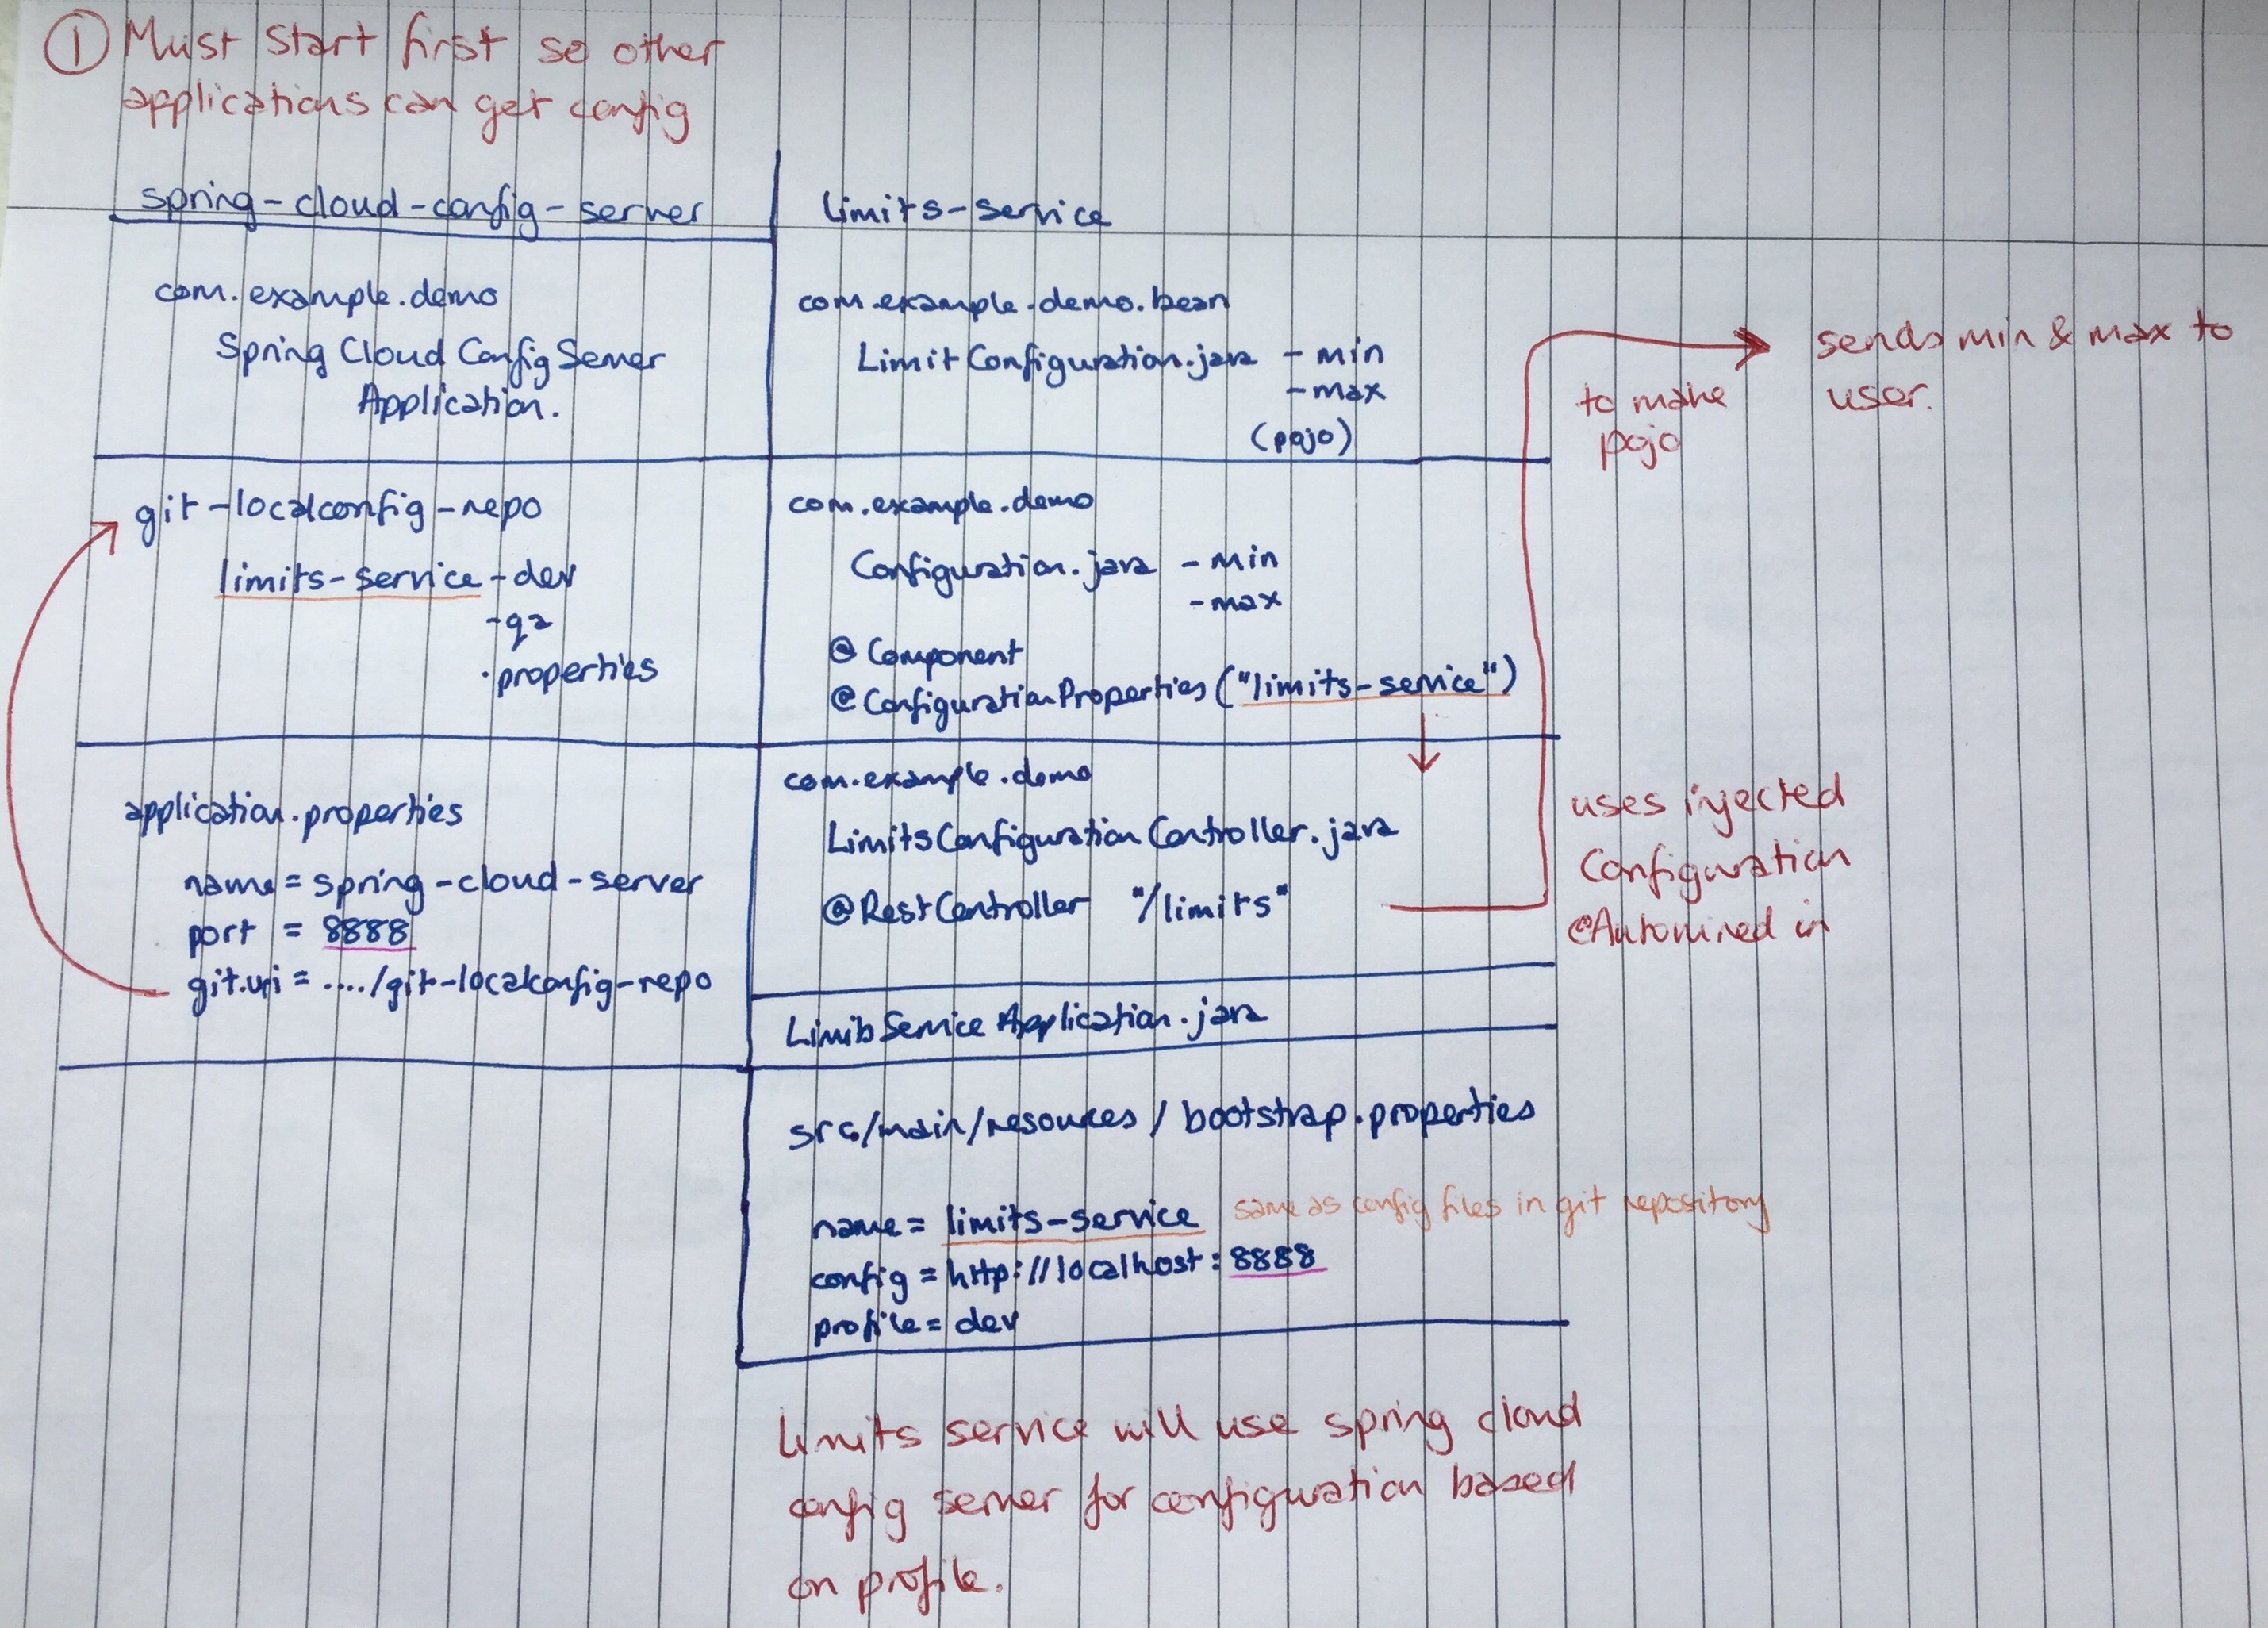 ① Must start first so other
applications can get config
spring-cloud-config-server
com.example.demo
Spring Cloud Config Server
Application.
git-localconfig-repo
limits-service -dev
-qa
.properties
application.properties
name = spring-cloud-server
port = 8888
git.uri = ..../git-localconfig-repo
limits-service
com.example.demo.bean
Limit Configuration.java - min
- max
(pojo)
com.example.demo
Configuration.java - min
- max
@Component
@ConfigurationProperties ("limits-service")
com.example.demo
LimitsConfigurationController.java
@RestController "/limits"
LimitsServiceApplication.java
src/main/resources / bootstrap.properties
name = limits-service same as config files in git repository
config = http://localhost:8888
profile = dev
to make
pojo
sends min & max to
user.
uses injected
Configuration
@Autowired in
Limits service will use spring cloud
config server for configuration based
on profile.